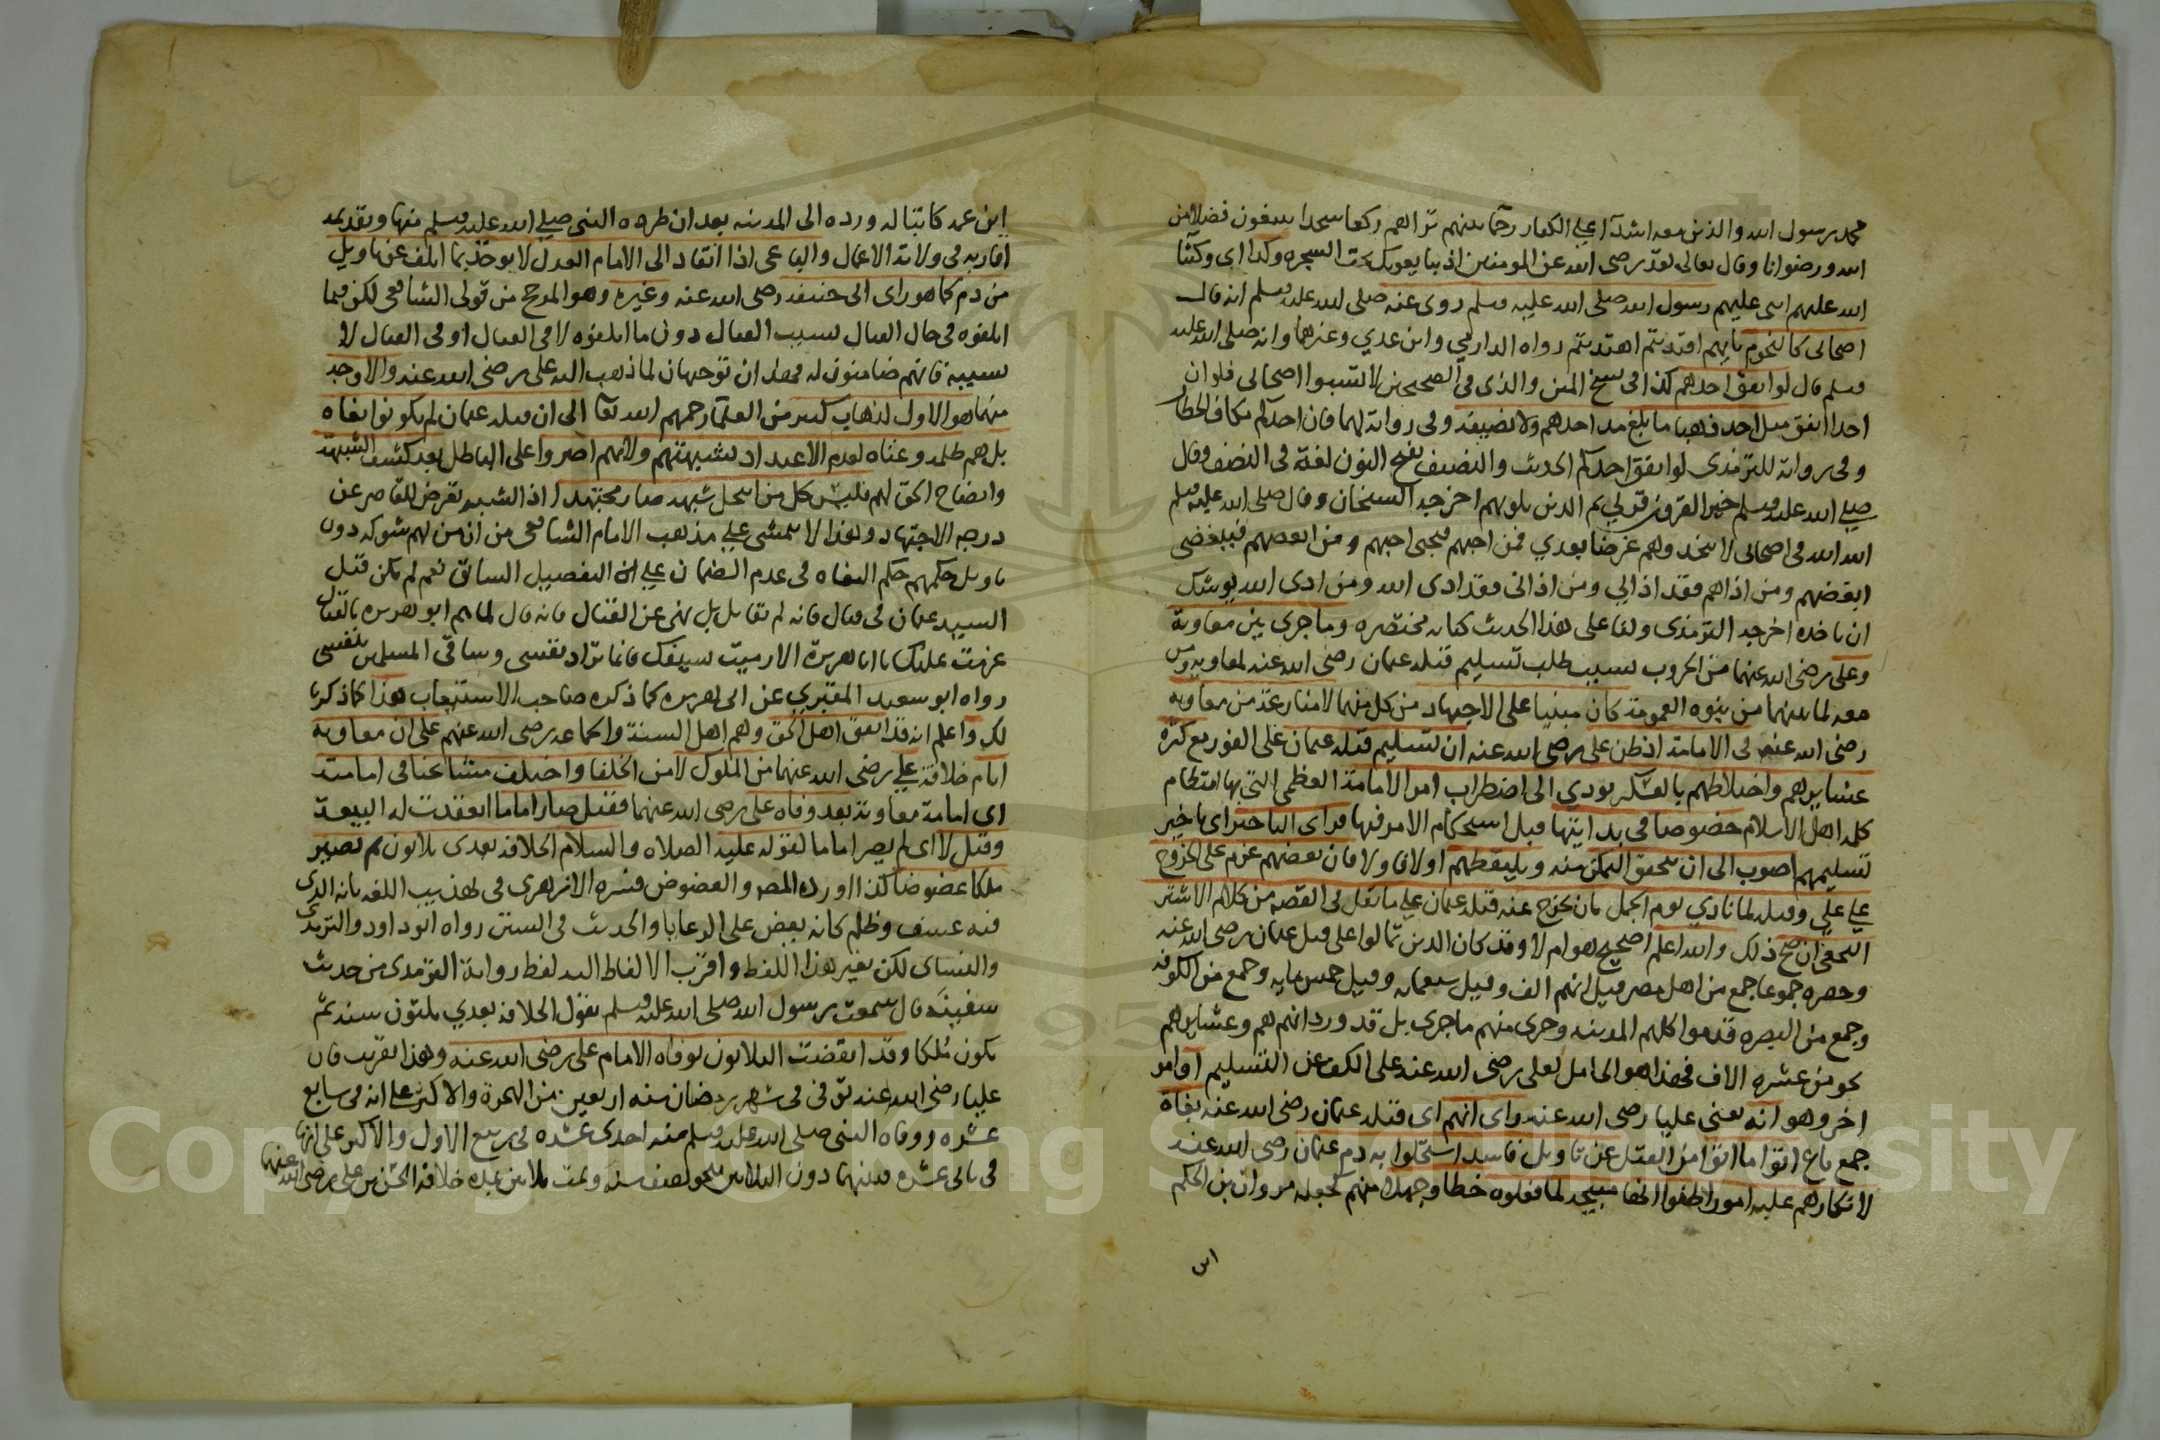 محمد رسول الله والذين معه اشدآء على الكفار رحما بينهم تراهم ركعا سجدا يبتغون فضلا من
الله ورضوانا وقال تعالى لقد رضى الله عن المومنين اذ يبايعونك تحت الشجره وكذا اى وكثنا
الله عليهم اثنى عليهم رسول الله صلى الله عليه وسلم روى عنه صلى الله عليه وسلم انه قال
اصحابى كالنجوم بايهم اقتديتم اهتديتم رواه الدارمي وابن عدي وغيرهما وانه صلى الله عليه
وسلم قال لو انفق احدهم كذا فى نسخ المتن والذى فى الصحيحين لا تسبوا اصحابى فلو ان
احدا انفق مثل احد ذهبا ما بلغ مد احدهم ولا نصيفه وفى رواية لهما فان احدكم
وفى رواية للترمذى لو انفق احدكم الحديث والنصيف بفتح النون لغة فى النصف وقال
صلى الله عليه وسلم خير القرون قرني ثم الذين يلونهم اخرجه الشيخان وقال صلى الله عليه وسلم
الله الله فى اصحابى لا تتخذوهم غرضا بعدي فمن احبهم فبحبى احبهم ومن ابغضهم فببغضى
ابغضهم ومن اذاهم فقد اذانى ومن اذانى فقد اذى الله ومن اذى الله يوشك
ان ياخذه اخرجه الترمذى ولنا على هذا الحديث كتابه مختصره وما جرى بين معاوية
وعلى رضى الله عنهما من الحروب بسبب طلب تسليم قتلة عثمان رضى الله عنه لمعاويه ومن
معه لما بينهما من بنوه العمومة كان مبنيا على الاجتهاد من كل منهما لا منازعة من معاويه
رضى الله عنه فى الامامة اذ ظن على رضى الله عنه ان تسليم قتلة عثمان على الفور مع كثرة
عشايرهم واختلاطهم بالعسكر يودي الى اضطراب امر الامامة العظمى التى بها انتظام
كلمة اهل الاسلام خصوصا فى بدايتها قبل استحكام الامر فيها فراى التاخير اى تاخير
تسليمهم اصوب الى ان يتحقق التمكن منه ويلتقطهم اولا فاولا فان بعضهم عزم على الخروج
على علي وقتله لما نادي يوم الجمل بان يخرج عنه قتلة عثمان على ما نقل فى القصة من كلام الاشتر
النخعى ان صح ذلك والله اعلم اصحيح هو ام لا وقد كان الذين تمالوا على قتل عثمان رضى الله عنه
وحصره جموعا جمع من اهل مصر قيل انهم الف وقيل سبعمايه وقيل خمسمايه وجمع من الكوفه
وجمع من البصره قدموا كلهم المدينه وجرى منهم ما جرى بل قد ورد انهم هم وعشايرهم
نحو من عشره الاف فهذا هو الحامل لعلى رضى الله عنه على الكف عن التسليم او امر
اخر وهو انه يعنى عليا رضى الله عنه راى انهم اى قتلة عثمان رضى الله عنه بغاة
جمع باغ اتوا ما اتوا من القتل عن تاويل فاسد استحلوا به دم عثمان رضى الله عنه
لانكارهم عليه امورا ظنوا انها مبيحه لما فعلوه خطا وجهلا منهم كجعله مروان بن الحكم
ابن
ابن عمه كاتبا له ورده الى المدينه بعد ان طرده النبى صلى الله عليه وسلم منها وتقديمه
اقاربه فى ولاية الاعمال والباغى اذا انقاد الى الامام العدل لا يوخذ بما اتلف عن تاويل
من دم كما هو راى ابى حنيفه رضى الله عنه وغيره وهو المرجح من قولى الشافعى لكن فيما
اتلفوه فى حال القتال بسبب القتال دون ما اتلفوه لا فى القتال او فى القتال لا
بسببه فانهم ضامنون له فهذان توجيهان لما ذهب اليه على رضى الله عنه والاوجه
منهما هو الاول لذهاب كثير من العلمآ رحمهم الله تعا الى ان قتلة عثمان لم يكونوا بغاه
بل هم ظلمه وعتاه لعدم الاعتداد بشبهتهم ولانهم اصروا على الباطل بعد كشف الشبهة
وايضاح الحق لهم فليس كل من انتحل شبهه صار مجتهدا اذ الشبهه تعرض للقاصر عن
درجه الاجتهاد وهذا لا يتمشى على مذهب الامام الشافعى من ان من لهم شوكه دون
تاويل حكمهم حكم البغاه فى عدم الضمان على التفصيل السابق نعم لم يكن قتل
السيد عثمان فى قتال فانه لم يقاتل بل نهى عن القتال فانه قال لما هم ابو هريره بالقتال
عزمت عليك يا ابا هريرة الا رميت سيفك فانما تراد نفسى وساقى المسلمين بنفسى
رواه ابو سعيد المقبري عن ابى هريره كما ذكره صاحب الاستيعاب هذا كما ذكرنا
لك واعلم انه قد اتفق اهل الحق وهم اهل السنة والجماعه رضى الله عنهم على ان معاويه
ايام خلافة على رضى الله عنهما من الملوك لا من الخلفا واختلف مشايخنا فى امامته
اى امامة معاوية بعد وفاه على رضى الله عنهما فقيل صار اماما انعقدت له البيعة
وقيل لا اى لم يصر اماما لقوله عليه الصلاه والسلام الخلافه بعدى ثلاثون ثم تصير
ملكا عضوضا كذا اورده المصر والعضوض فسره الازهرى فى تهذيب اللغه بانه الذى
فيه عسف وظلم كانه يعض على الرعايا والحديث فى السنن رواه ابو داود والترمذى
والنساى لكن بغير هذا اللفظ واقرب الالفاظ اليه لفظ رواية الترمذى من حديث
سفينه قال سمعت رسول الله صلى الله عليه وسلم يقول الخلافه بعدي ثلثون سنه ثم
يكون مُلكا وقد انقضت الثلاثون بوفاه الامام على رضى الله عنه وهذا تقريب فان
عليا رضى الله عنه توفى فى شهر رمضان سنه اربعين من الهجرة والاكثر على انه فى سابع
عشره ووفاه النبى صلى الله عليه وسلم سنه احدى عشره فى ربيع الاول والاكثر على انها
فى ثانى عشره فبينهما دون الثلاثين بنحو نصف سنه وتمت ثلاثين بمده خلافه الحسن بن على رضى الله عنهما